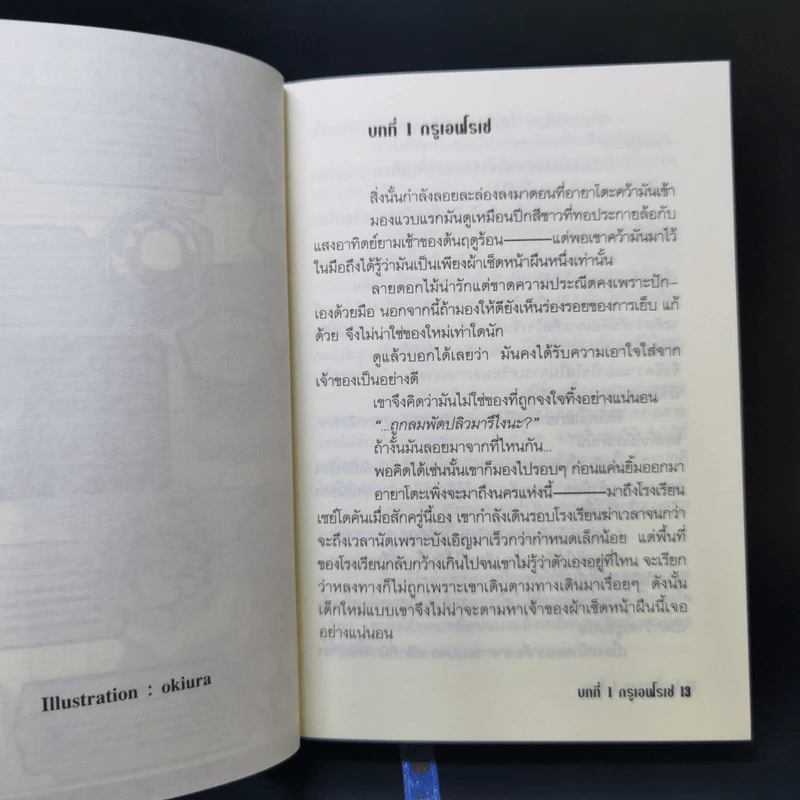 Illustration : okiura
บทที่ 1 กรูเอนโรเซ่
สิ่งนั้นกำลังลอยละล่องลงมาตอนที่อายาโตะคว้ามันเข้า
มองแวบแรกมันดูเหมือนปีกสีขาวที่ทอประกายล้อกับ
แสงอาทิตย์ยามเช้าของต้นฤดูร้อน———แต่พอเขาคว้ามันมาไว้
ในมือถึงได้รู้ว่ามันเป็นเพียงผ้าเช็ดหน้าผืนหนึ่งเท่านั้น
ลายดอกไม้น่ารักแต่ขาดความประณีตคงเพราะปัก–
เองด้วยมือ นอกจากนี้ถ้ามองให้ดียังเห็นร่องรอยของการเย็บ แก้
ด้วย จึงไม่น่าใช่ของใหม่เท่าใดนัก
ดูแล้วบอกได้เลยว่า มันคงได้รับความเอาใจใส่จาก
เจ้าของเป็นอย่างดี
เขาจึงคิดว่ามันไม่ใช่ของที่ถูกจงใจทิ้งอย่างแน่นอน
“...ถูกลมพัดปลิวมารึไงนะ?”
ถ้างั้นมันลอยมาจากที่ไหนกัน...
พอคิดได้เช่นนั้นเขาก็มองไปรอบๆ ก่อนแค่นยิ้มออกมา
อายาโตะเพิ่งจะมาถึงนครแห่งนี้———มาถึงโรงเรียน
เซย์โดคันเมื่อสักครู่นี้เอง เขากำลังเดินรอบโรงเรียนฆ่าเวลาจนกว่า
จะถึงเวลานัดเพราะบังเอิญมาเร็วกว่ากำหนดเล็กน้อย แต่พื้นที่
ของโรงเรียนกลับกว้างเกินไปจนเขาไม่รู้ว่าตัวเองอยู่ที่ไหน จะเรียก
ว่าหลงทางก็ไม่ถูกเพราะเขาเดินตามทางเดินมาเรื่อยๆ ดังนั้น
เด็กใหม่แบบเขาจึงไม่น่าจะตามหาเจ้าของผ้าเช็ดหน้าผืนนี้เจอ
อย่างแน่นอน
บทที่ 1 กรูเอนโรเซ่ 13